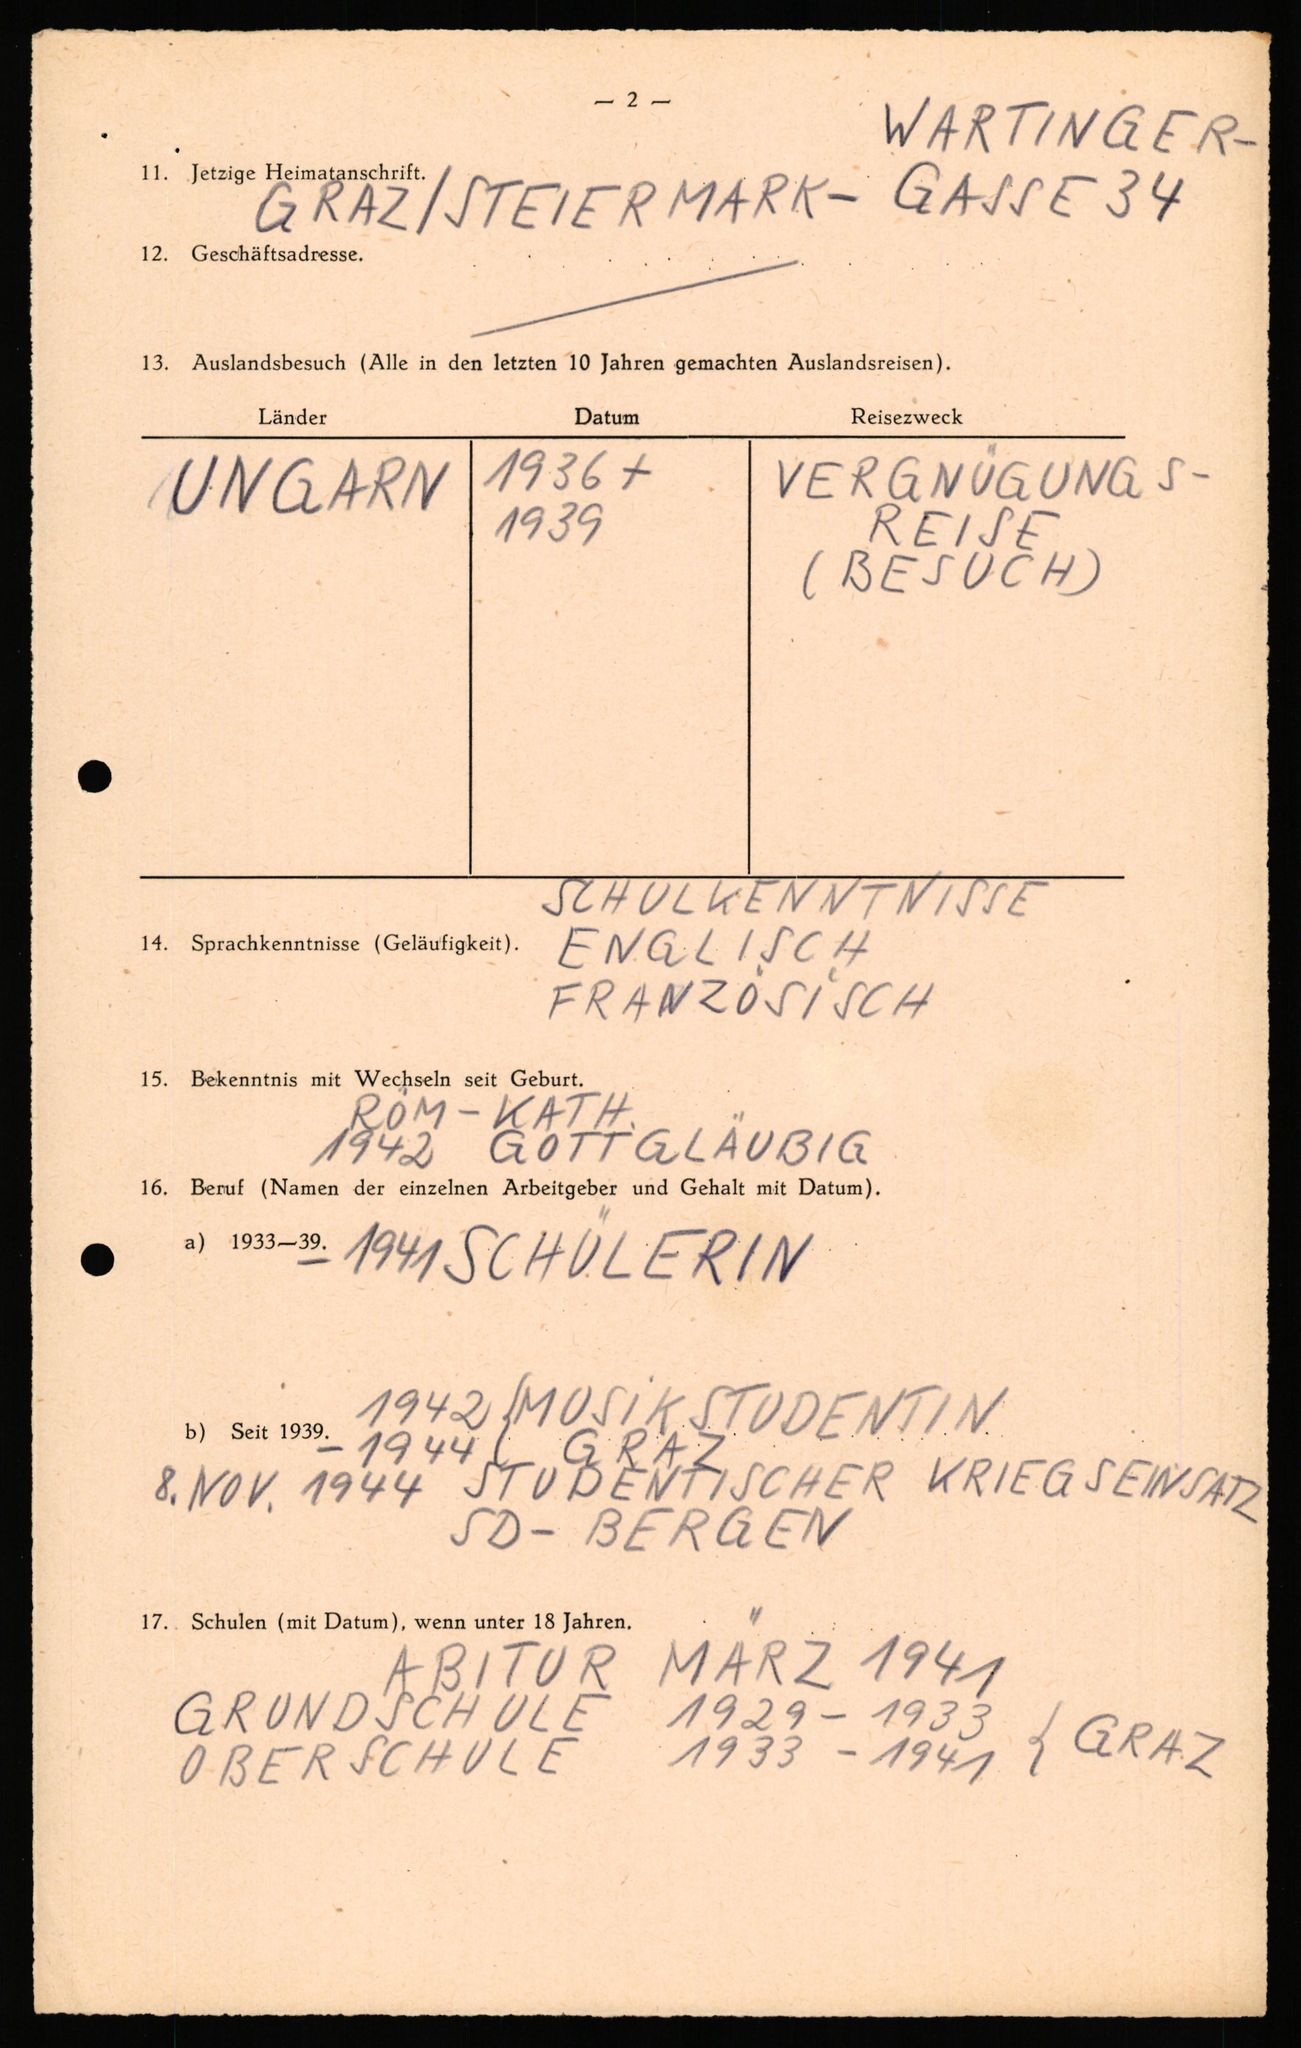 — 2 —
11. Jetzige Heimatanschrift.
WARTINGER-
GRAZ/STEIERMARK- GASSE 34
12. Geschäftsadresse.
13. Auslandsbesuch (Alle in den letzten 10 Jahren gemachten Auslandsreisen).
Länder Datum Reisezweck
UNGARN 1936 + VERGNÜGUNGS-
1939 REISE
(BESUCH)
SCHULKENNTNISSE
14. Sprachkenntnisse (Geläufigkeit). ENGLISCH
FRANZÖSISCH
15. Bekenntnis mit Wechseln seit Geburt.
RÖM-KATH.
1942 GOTTGLÄUBIG
16. Beruf (Namen der einzelnen Arbeitgeber und Gehalt mit Datum).
a) 1933—39. – 1941 SCHÜLERIN
1942 { MUSIKSTUDENTIN
b) Seit 1939. – 1944 { GRAZ
8. NOV. 1944 STUDENTISCHER KRIEGSEINSATZ
SD- BERGEN
17. Schulen (mit Datum), wenn unter 18 Jahren.
ABITUR MÄRZ 1941
GRUNDSCHULE 1929 – 1933
OBERSCHULE 1933 – 1941 } GRAZ